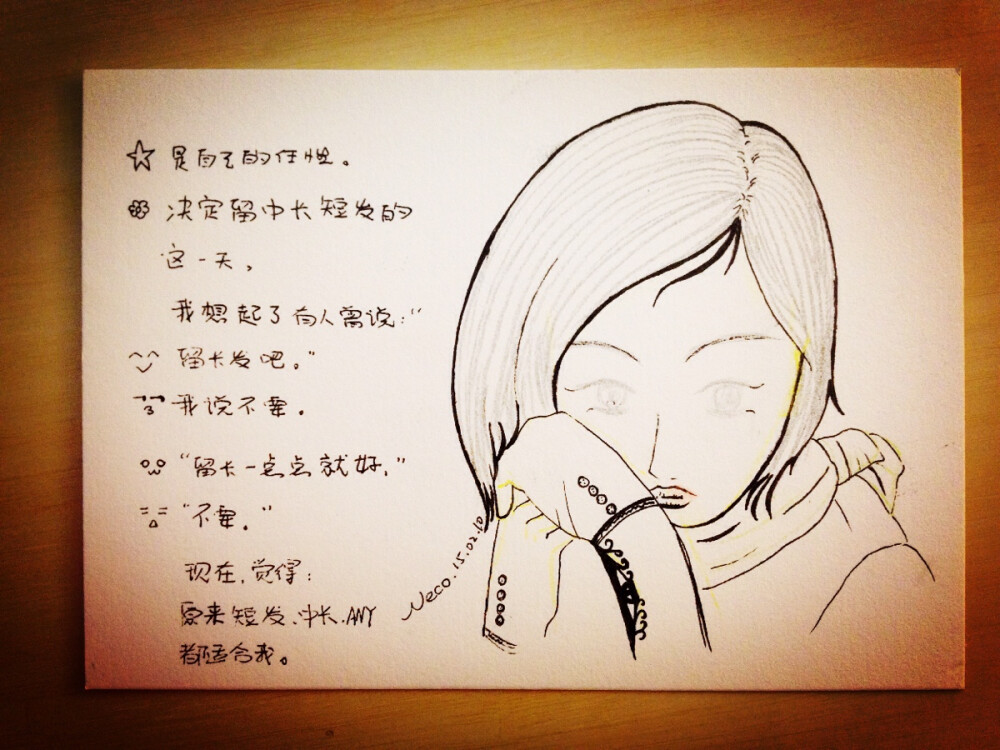 ☆ 是自己的任性。
决定留中长短发的
这一天,
我想起了有人曾说:"
留长发吧。"
我说不要。
"留长一点点就好,"
"不要。"
现在,觉得:
原来短发、中长、ANY
都适合我。
Neco.15.02.10